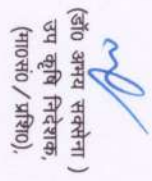 (डॉ० अमय सक्सेना )
उप कृषि निदेशक,
(मा०सं० / प्रशि०),